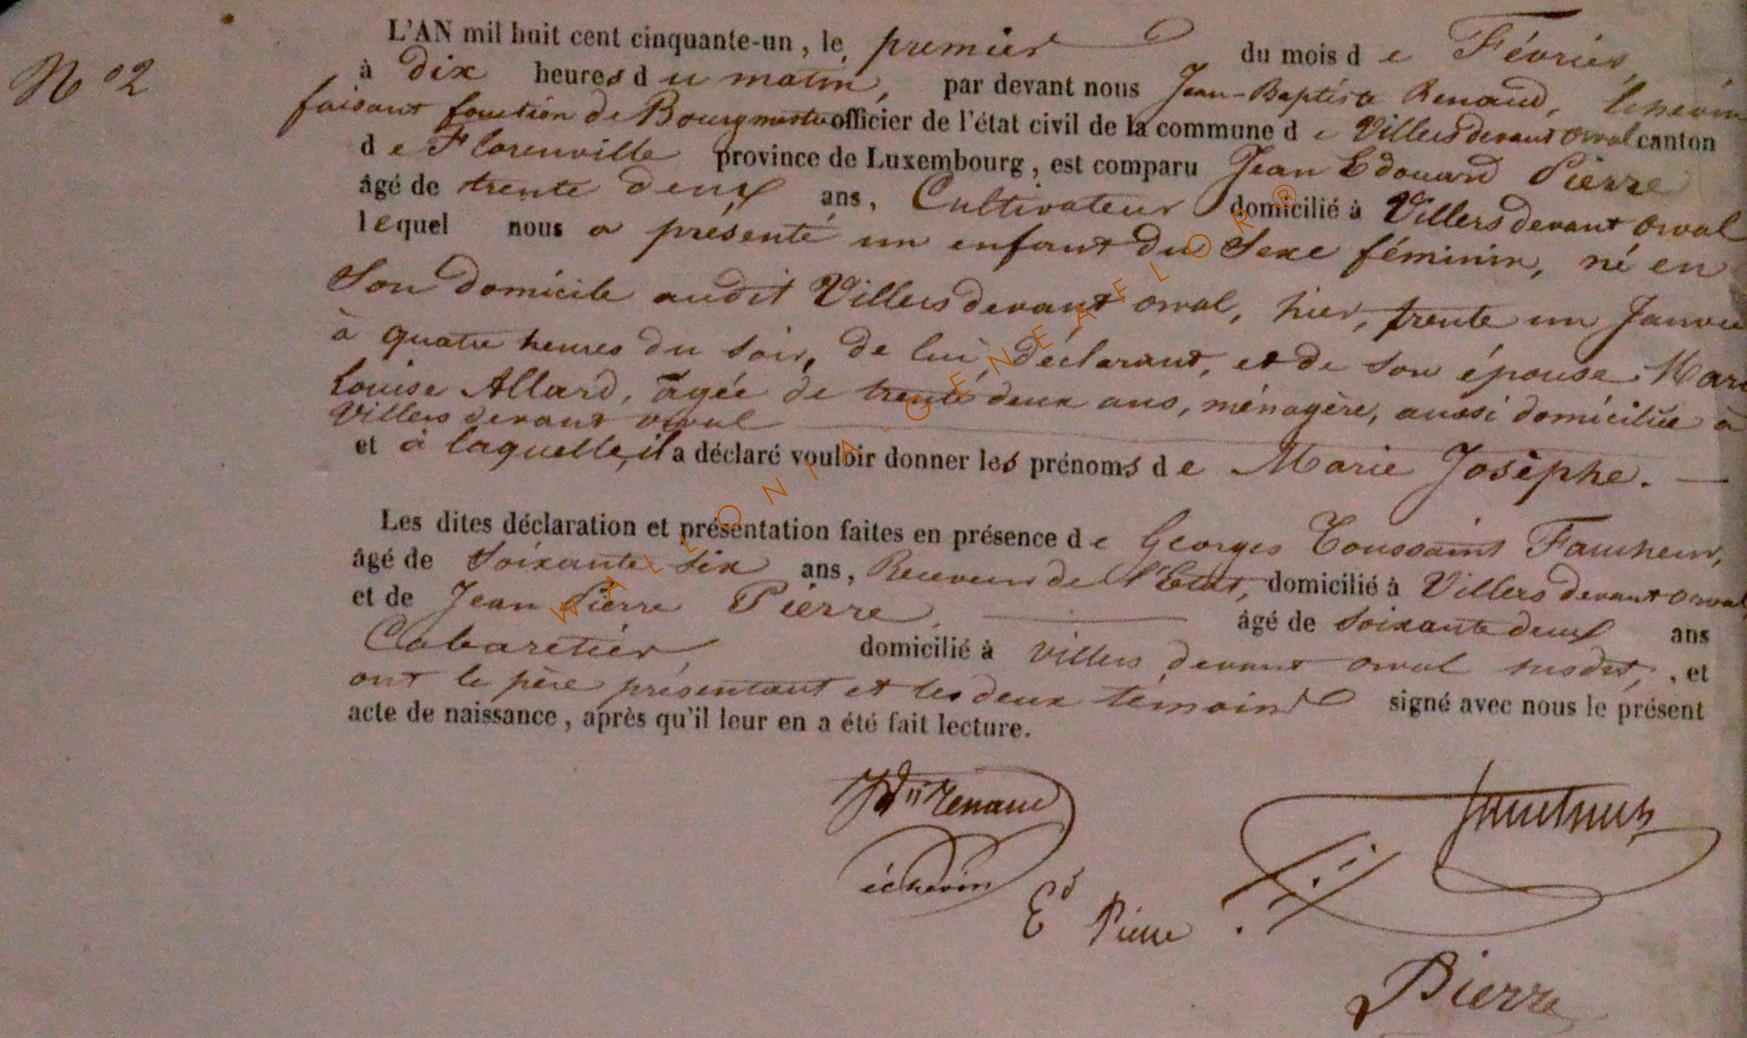 N° 2
L'AN mil huit cent cinquante-un, le premier du mois de Février,
à dix heures du matin, par devant nous Jean-Baptiste Renaud, Echevin
faisant fonction de Bourgmestre officier de l'état civil de la commune de Villers devant orval canton
de Florenville province de Luxembourg, est comparu Jean Edouard Pierre
âgé de trente deux ans, Cultivateur domicilié à Villers devant orval
lequel nous a présenté un enfant du Sexe féminin, né en
Son domicile audit Villers devant orval, hier, trente un Janvier
à quatre heures du soir, de lui, déclarant, et de son épouse Mari
Louise Allard, agée de trente deux ans, ménagère, aussi domiciliée à
Villers devant orval
et à laquelle, il a déclaré vouloir donner les prénoms de Marie Josèphe.
Les dites déclaration et présentation faites en présence de Georges Toussaint
âgé de Soixante six ans, Receveur de l'Etat, domicilié à Villers devant orval
et de Jean Pierre Pierre, âgé de soixante deux ans
Cabaretier domicilié à villers devant orval susdit, , et
ont le père présentant et les deux témoins signé avec nous le présent
acte de naissance, après qu'il leur en a été fait lecture.
Renaud
échevin
Ed Pierre
Pierre
WALLONIA-GENEAFLOR®